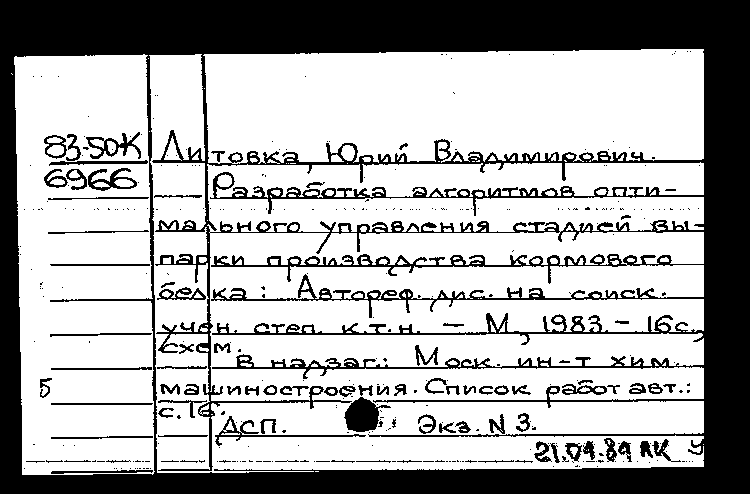 83-50К Литовка, Юрий Владимирович.
6966 Разработка алгоритмов опти-
мального управления стадией вы-
парки производства кормового
белка: Автореф. дис. на соиск.
учен. степ. к.т.н. - М., 1983. - 16с.,
схем.
В надзаг.: Моск. ин-т хим.
5 машиностроения. Список работ авт.:
с.16.
ДСП. Экз. N 3.
21.04.89 ЛК